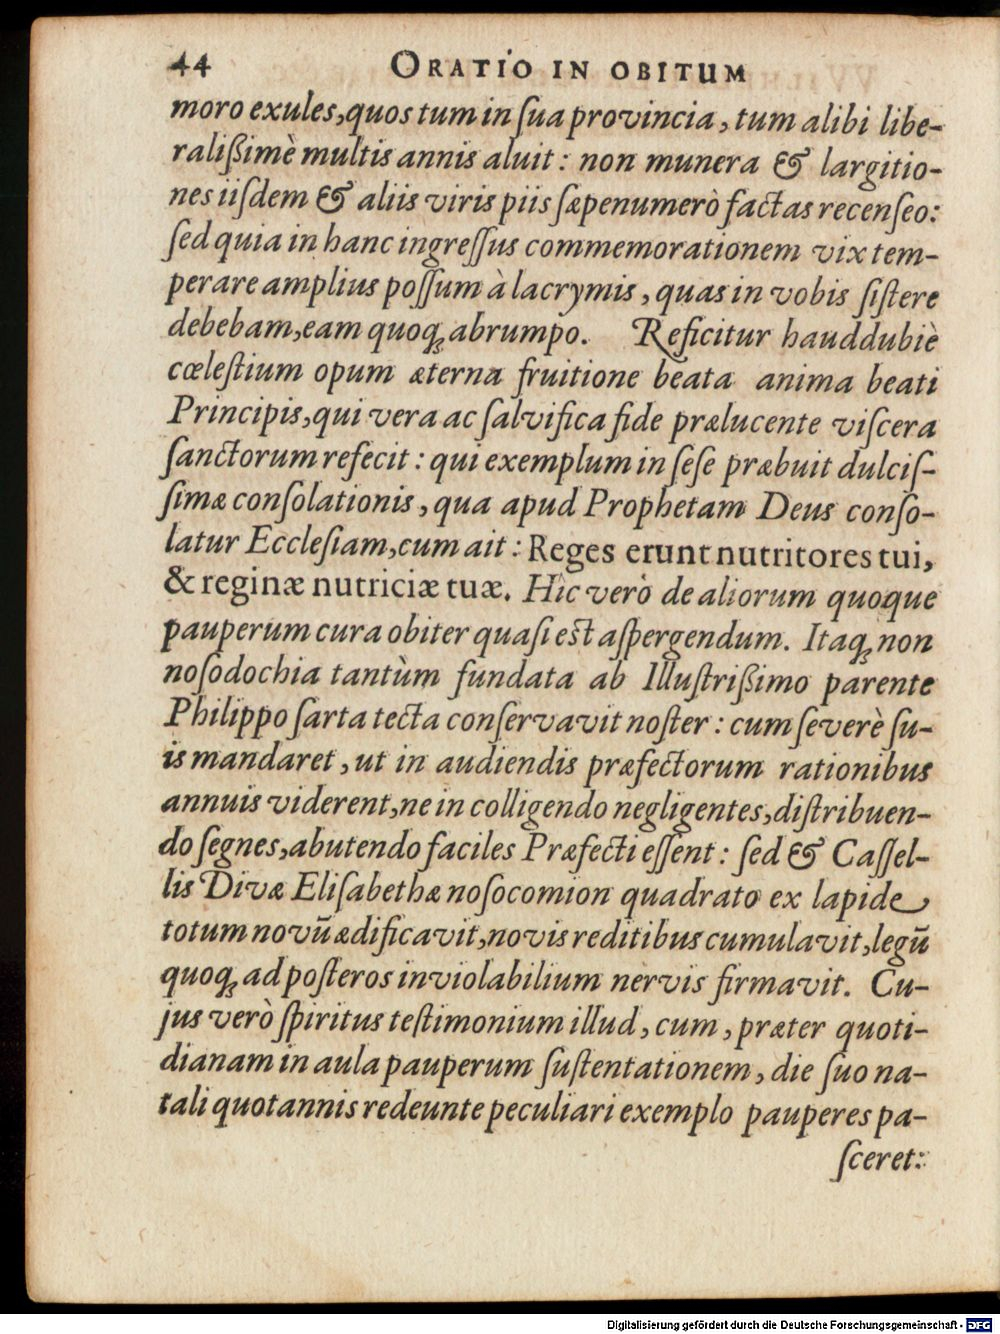 44 ORATIO IN OBITUM
moro exules, quos tum in ſua provincia, tum alibi libe-
raliſſimè multis annis aluit: non munera & largitio-
nes iiſdem & aliis viris piis ſæpenumerò factas recenſeo:
ſed quia in hanc ingreſſus commemorationem vix tem-
perare amplius poſſum à lacrymis, quas in vobis ſiſtere
debebam, eam quoqꝫ abrumpo. Reficitur hauddubiè
cœleſtium opum æterna fruitione beata anima beati
Principis, qui vera ac ſalvifica fide prælucente viſcera
ſanctorum refecit: qui exemplum in ſeſe præbuit dulciſ-
ſimæ conſolationis, qua apud Prophetam Deus conſo-
latur Eccleſiam, cum ait: Reges erunt nutritores tui,
& reginæ nutriciæ tuæ. Hîc verò de aliorum quoque
pauperum cura obiter quaſi eſt aſpergendum. Itaqꝫ non
noſodochia tantùm fundata ab Illuſtriſſimo parente
Philippo ſarta tecta conſervavit noſter: cum ſeverè ſu-
is mandaret, ut in audiendis præfectorum rationibus
annuis viderent, ne in colligendo negligentes, diſtribuen-
do ſegnes, abutendo faciles Præfecti eſſent: ſed & Caſſel-
lis Divæ Eliſabethæ noſocomion quadrato ex lapide
totum novũ ædificavit, novis reditibus cumulavit, legũ
quoqꝫ ad poſteros inviolabilium nervis firmavit. Cu-
jus verò ſpiritus teſtimonium illud, cum, præter quoti-
dianam in aula pauperum ſuſtentationem, die ſuo na-
tali quotannis redeunte peculiari exemplo pauperes pa-
ſceret:
Digitalisierung gefördert durch die Deutsche Forschungsgemeinschaft - DFG